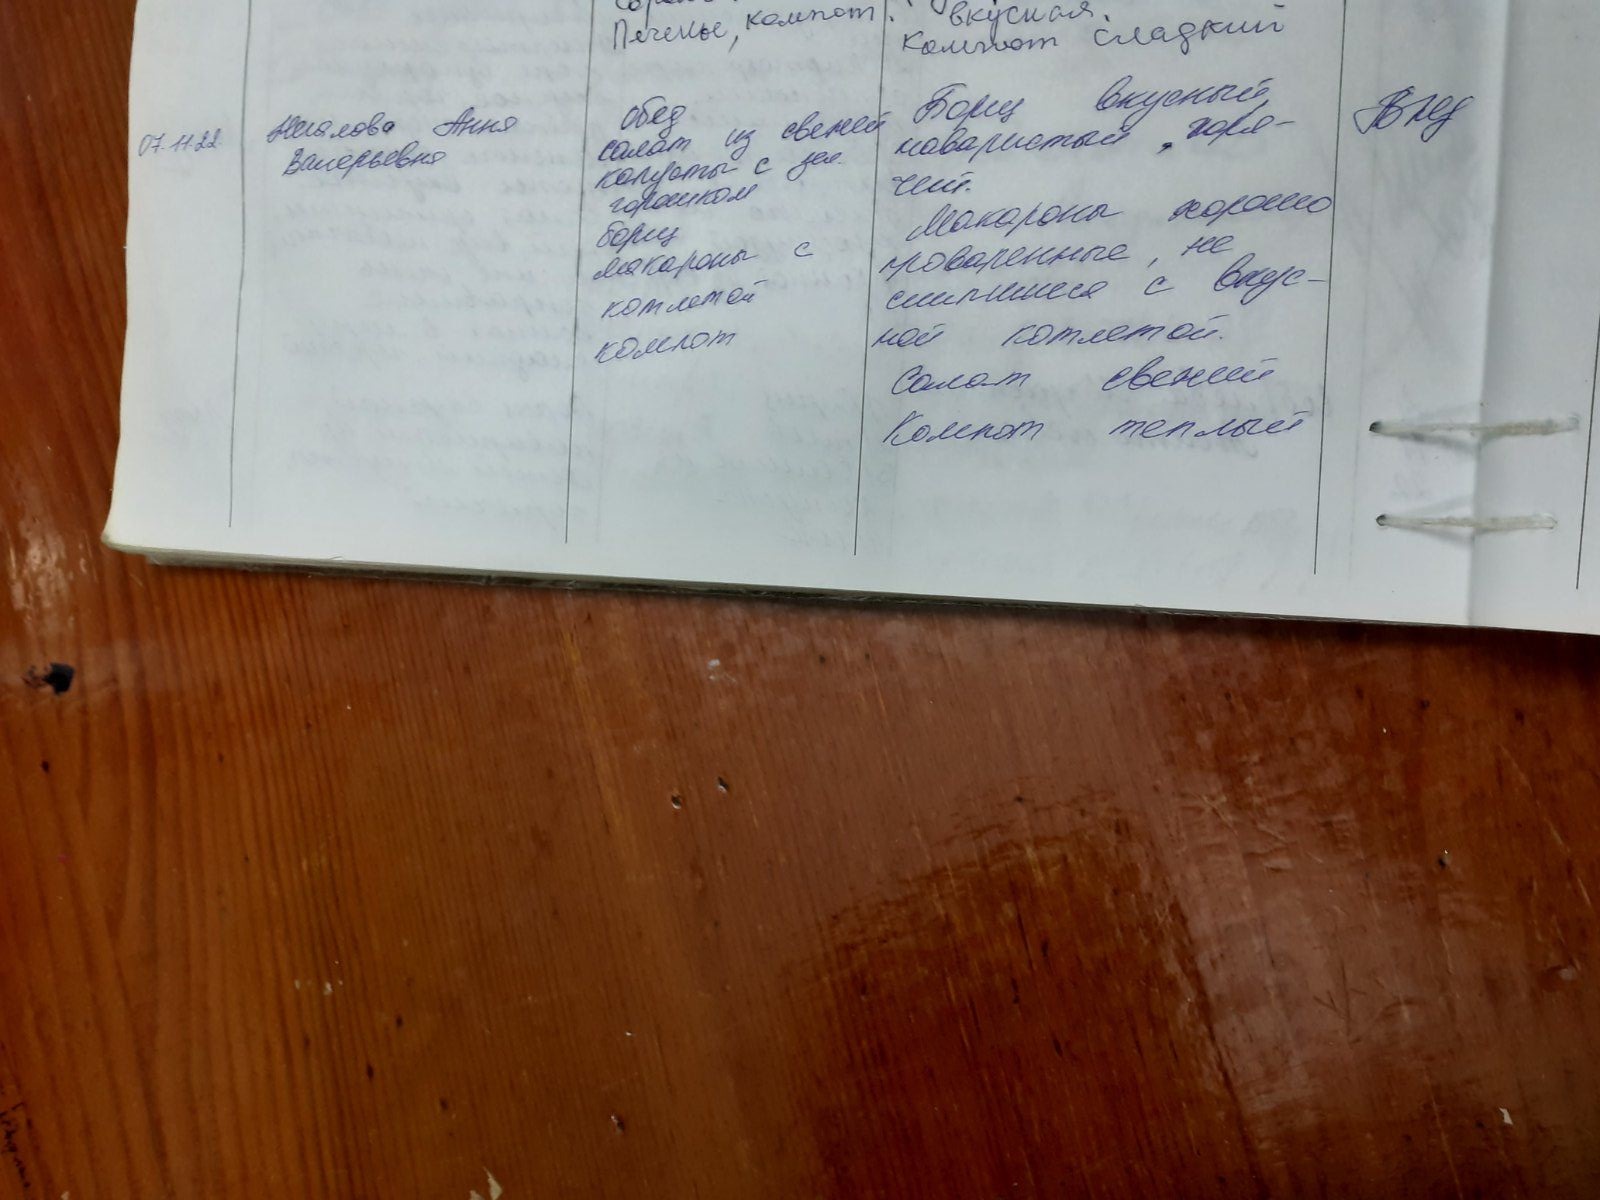 Печенье, компот.
вкусная.
Компот сладкий
07.11.22
Анна
Валерьевна
Обед
салат из свежей
капусты с зел.
горошком
борщ
макароны с
котлетой
компот
Борщ вкусный,
наваристый, горя-
чий.
Макароны хорошо
проваренные, не
слипшиеся с вкус-
ной котлетой.
Салат свежий
Компот теплый